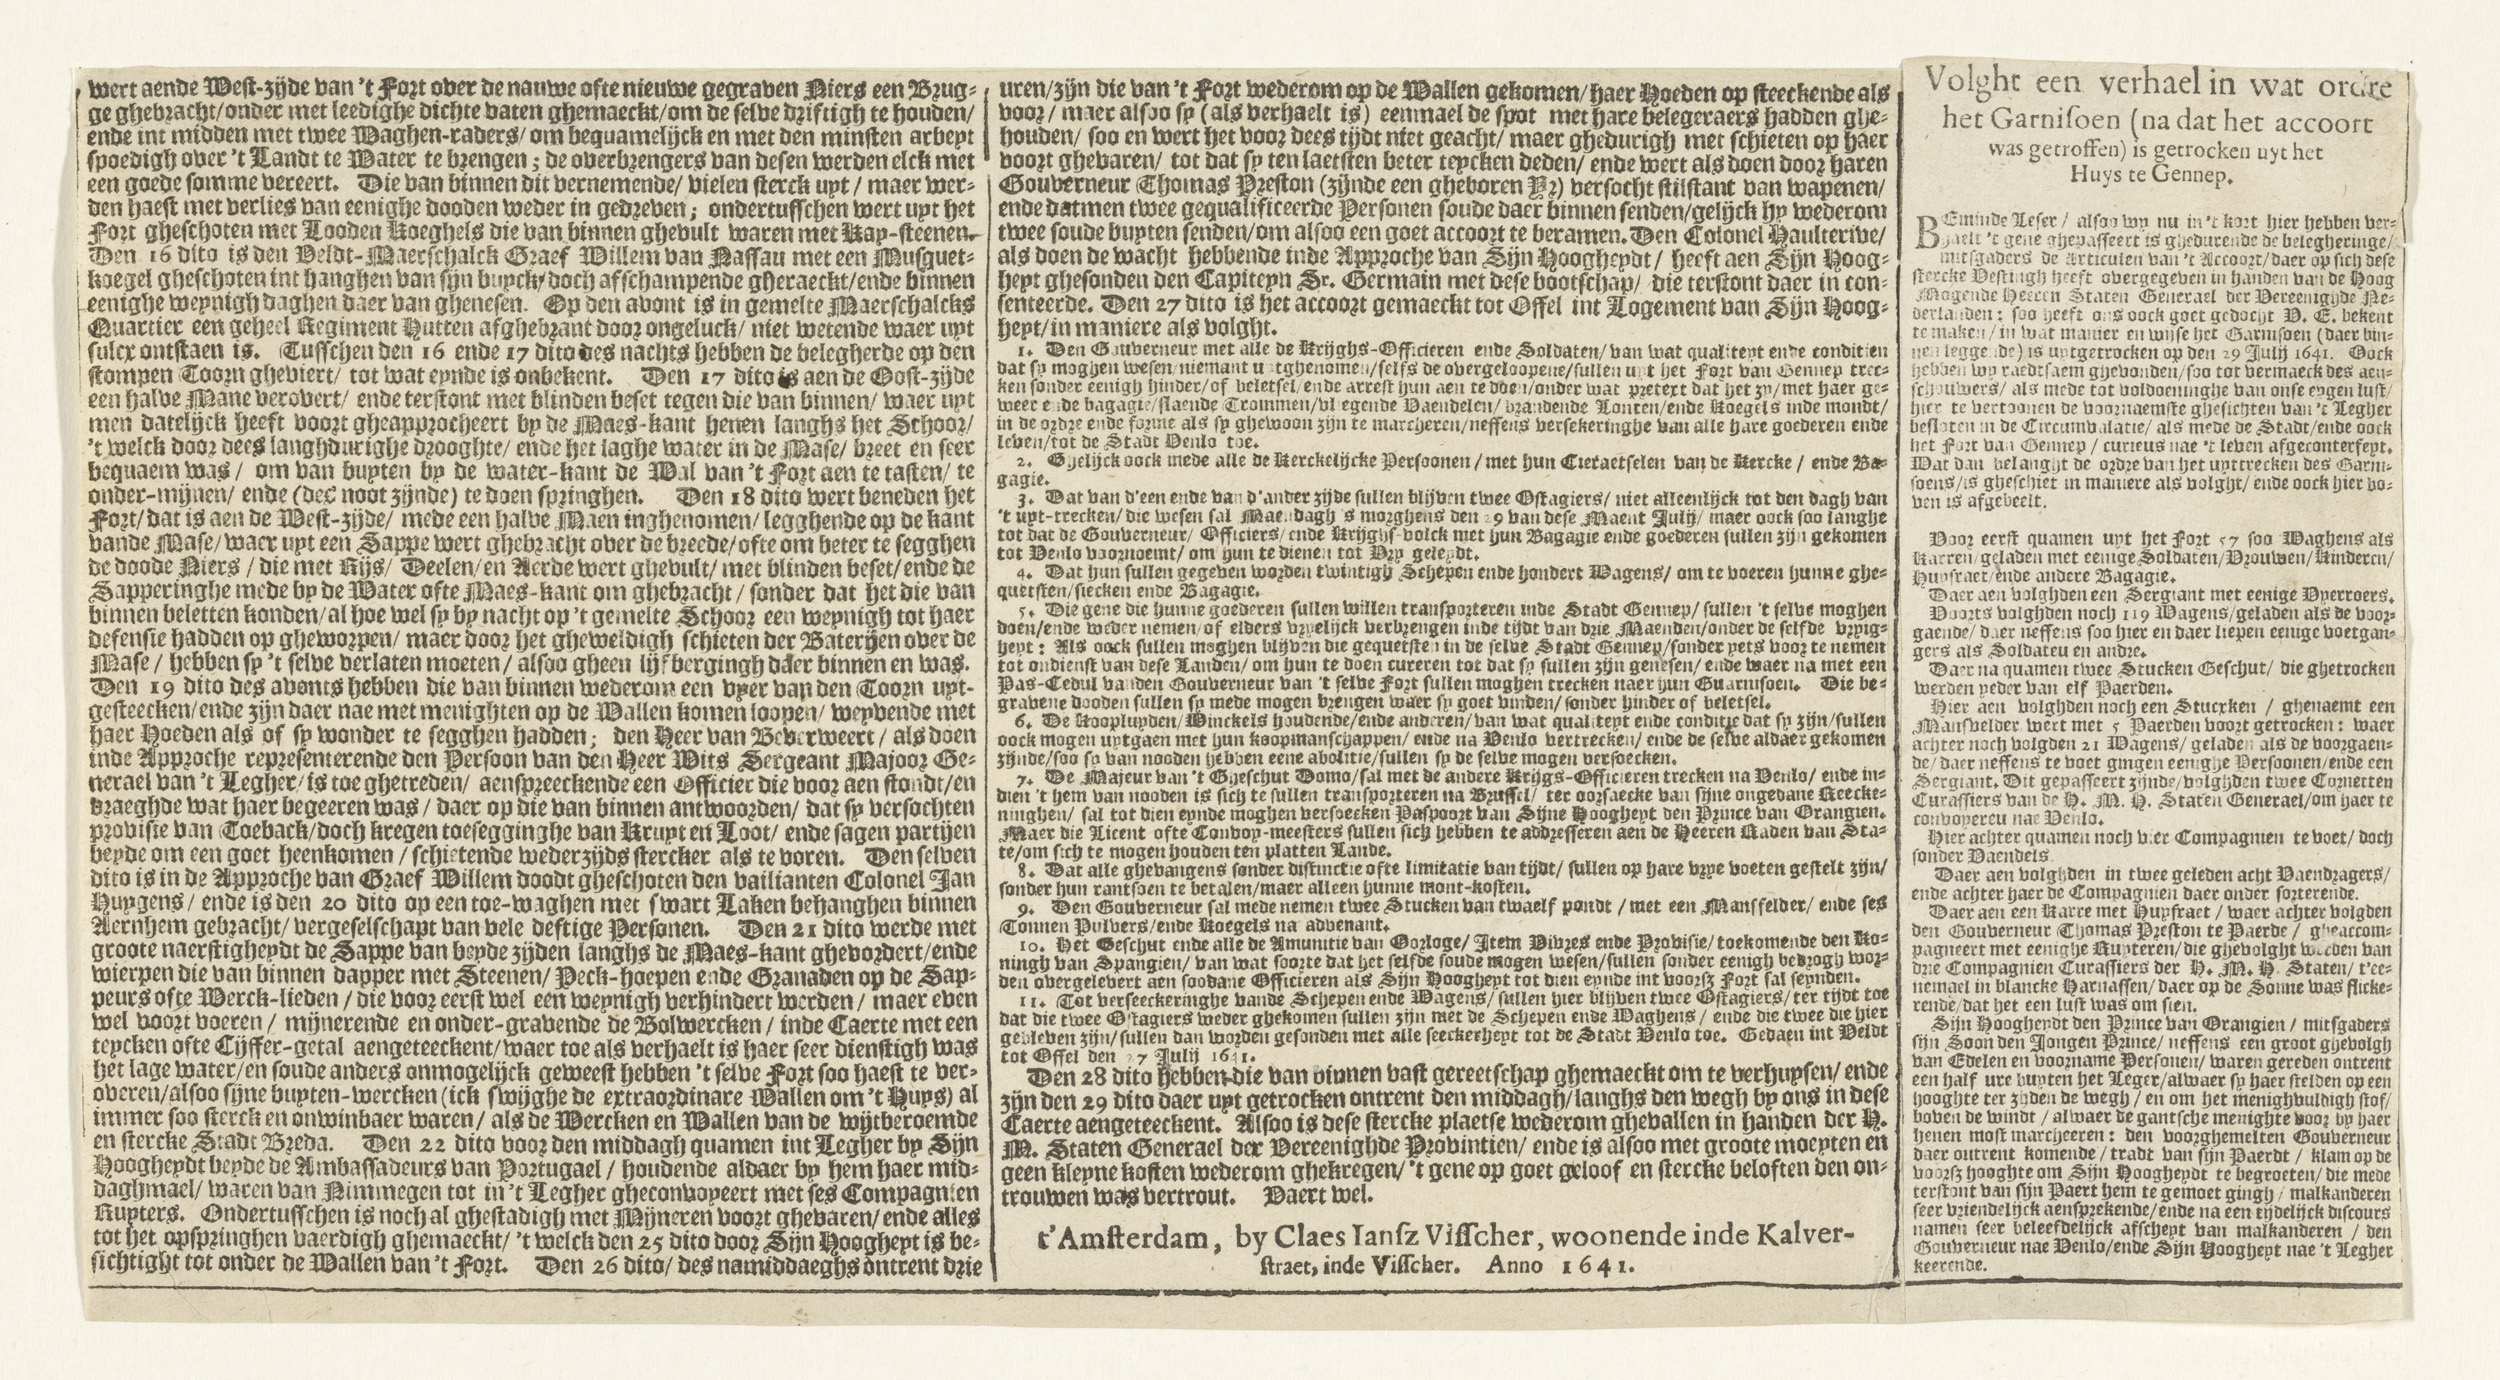 wert aende West-zijde van 't Fort over de nauwe ofte nieuwe gegraven Niers een Brug-
ge ghebracht/onder met leedighe dichte vaten ghemaeckt/om de selve driftigh te houden/
ende int midden met twee Waghen-raders/ om bequamelijck en met den minsten arbeyt
spoedigh over 't Landt te Water te brengen ; de overbrengers van desen werden elck met
een goede somme vereert. Die van binnen dit vernemende/ vielen sterck uyt / maer wer-
den haest met verlies van eenighe dooden weder in gedreven ; ondertusschen wert uyt het
Fort gheschoten met Looden Koeghels die van binnen ghevult waren met Kay-steenen.
Den 16 dito is den Veldt-Maerschalck Graef Willem van Nassau met een Musquet-
koegel gheschoten int hanghen van sijn buyck/ doch afschampende gheraeckt/ende binnen
eenighe weynigh daghen daer van ghenesen. Op den avont is in gemelte Maerschalcks
Quartier een geheel Regiment Hutten afghebrant door ongeluck/ niet wetende waer uyt
sulcx ontstaen is. Tusschen den 16 ende 17 dito des nachts hebben de belegherde op den
stompen Toorn gheviert/ tot wat eynde is onbekent. Den 17 dito is aen de Oost-zijde
een halve Mane verovert/ ende terstont met blinden beset tegen die van binnen/ waer uyt
men datelijck heeft voort gheapprocheert by de Maes-kant henen langhs het Schoor/
't welck door dees langhdurighe drooghte/ ende het laghe water in de Mase/ breet en seer
bequaem was / om van buyten by de water-kant de Wal van 't Fort aen te tasten/ te
onder-mijnen/ ende (des noot zijnde) te doen springhen. Den 18 dito wert beneden het
Fort/ dat is aen de West-zijde/ mede een halve Maen inghenomen/ legghende op de kant
vande Mase/ waer uyt een Sappe wert ghebracht over de breede/ofte om beter te segghen
de doode Niers / die met Rijs/ Deelen/ en Aerde wert ghevult/ met blinden beset/ende de
Sapperinghe mede by de Water ofte Maes-kant om ghebracht / sonder dat het die van
binnen beletten konden/ al hoe wel sy by nacht op 't gemelte Schoor een weynigh tot haer
defensie hadden op gheworpen/ maer door het gheweldigh schieten der Baterijen over de
Mase / hebben sy 't selve verlaten moeten / alsoo gheen lijfbergingh daer binnen en was.
Den 19 dito des avonts hebben die van binnen wederom een vyer van den Toorn uyt-
gesteecken/ende zijn daer nae met menighten op de Wallen komen loopen/ weyvende met
haer Hoeden als of sy wonder te segghen hadden ; den Heer van Beverweert / als doen
inde Approche representerende den Persoon van den Heer Wits Sergeant Majoor Ge-
nerael van 't Legher/ is toe ghetreden/ aenspreeckende een Officier die voor aen stondt/en
vraeghde wat haer begeeren was / daer op die van binnen antwoorden/ dat sy versochten
provisie van Toeback/doch kregen toesegginghe van Kruyt en Loot/ ende sagen partijen
beyde om een goet heenkomen / schietende wederzijds stercker als te voren. Den selven
dito is in de Approche van Graef Willem doodt gheschoten den vailianten Colonel Jan
Huygens / ende is den 20 dito op een toe-waghen met swart Laken behanghen binnen
Aernhem gebracht/ vergeselschapt van vele deftige Personen. Den 21 dito werde met
groote naerstigheydt de Sappe van beyde zijden langhs de Maes-kant ghevordert/ende
wierpen die van binnen dapper met Steenen/ Peck-hoepen ende Granaden op de Sap-
peurs ofte Werck-lieden / die voor eerst wel een weynigh verhindert werden / maer even
wel voort voeren / mijnerende en onder-gravende de Bolwercken / inde Caerte met een
teycken ofte Cijffer-getal aengeteeckent/waer toe als verhaelt is haer seer dienstigh was
het lage water/en soude anders onmogelijck geweest hebben 't selve Fort soo haest te ver-
overen/alsoo sijne buyten-wercken (ick swijghe de extraordinare Wallen om 't Huys) al
immer soo sterck en onwinbaer waren / als de Wercken en Wallen van de wijtberoemde
en stercke Stadt Breda. Den 22 dito voor den middagh quamen int Legher by Sijn
Hoogheydt beyde de Ambassadeurs van Portugael / houdende aldaer by hem haer mid-
daghmael/ waren van Nimmegen tot in 't Legher gheconvoyeert met ses Compagnien
Ruyters. Ondertusschen is noch al ghestadigh met Mijneren voort ghevaren/ ende alles
tot het opspringhen vaerdigh ghemaeckt/ 't welck den 25 dito door Sijn Hoogheyt is be-
sichtight tot onder de Wallen van 't Fort. Den 26 dito/ des namiddaeghs ontrent drie
uren/zijn die van 't Fort wederom op de Wallen gekomen/ haer Hoeden op steeckende als
voor / maer alsoo sy (als verhaelt is) eenmael de spot met hare belegeraers hadden ghe-
houden/ soo en wert het voor dees tijdt niet geacht/ maer ghedurigh met schieten op haer
voort ghevaren/ tot dat sy ten laetsten beter teycken deden/ ende wert als doen door haren
Gouverneur Thomas Preston (zijnde een gheboren Yr) versocht stilstant van wapenen/
ende datmen twee gequalificeerde Personen soude daer binnen senden/gelijck hy wederom
twee soude buyten senden/om alsoo een goet accoort te beramen. Den Colonel Haulterive/
als doen de wacht hebbende inde Approche van Sijn Hoogheydt / heeft aen Sijn Hoog-
heyt ghesonden den Capiteyn Sr. Germain met dese bootschap/ die terstont daer in con-
senteerde. Den 27 dito is het accoort gemaeckt tot Offel int Logement van Sijn Hoog-
heyt/in maniere als volght.
1. Den Gouverneur met alle de Krijghs-Officieren ende Soldaten/ van wat qualiteyt ende conditien
dat sy moghen wesen/niemant uytghenomen/selfs de overgeloopene/sullen uyt het Fort van Gennep trec-
ken sonder eenigh hinder/of beletsel/ende arrest hun aen te doen/onder wat pretext dat het zy/met haer ge-
weer ende bagagie/slaende Trommen/vliegende Vaendelen/ brandende Lonten/ende Koegels inde mondt/
in de ordre ende forme als sy ghewoon zijn te marcheren/neffens versekeringhe van alle hare goederen ende
leven/tot de Stadt Venlo toe.
2. Ghelijck oock mede alle de Kerckelijcke Persoonen / met hun Cieraetselen van de Kercke / ende Ba-
gagie.
3. Dat van d'een ende van d'ander zijde sullen blijven twee Ostagiers/ niet alleenlijck tot den dagh van
't uyt-trecken/ die wesen sal Maendagh 's morghens den 29 van dese Maent July/ maer oock soo langhe
tot dat de Gouverneur/ Officiers/ ende Krijghs-volck met hun Bagagie ende goederen sullen zijn gekomen
tot Venlo voornoemt/ om hun te dienen tot Vry geleydt.
4. Dat hun sullen gegeven worden twintigh Schepen ende hondert Wagens/ om te voeren hunne ghe-
quetsten/siecken ende Bagagie.
5. Die gene die hunne goederen sullen willen transporteren inde Stadt Gennep/ sullen 't selve moghen
doen/ende weder nemen/of elders vryelijck verbrengen inde tijdt van drie Maenden/onder de selfde vryig-
heyt : Als oock sullen moghen blijven die gequetsten in de selve Stadt Gennep/sonder yets voor te nemen
tot ondienst van dese Landen/ om hun te doen cureren tot dat sy sullen zijn genesen/ ende waer na met een
Pas-Cedul vanden Gouverneur van 't selve Fort sullen moghen trecken naer hun Guarnisoen. Die be-
gravene dooden sullen sy mede mogen brengen waer sy goet vinden/ sonder hinder of beletsel.
6. De Koopluyden/ Winckels houdende/ende anderen/ van wat qualiteyt ende conditie dat sy zijn/sullen
oock mogen uytgaen met hun koopmanschappen/ ende na Venlo vertrecken/ ende de selve aldaer gekomen
zijnde/soo sy van nooden hebben eene abolitie/sullen sy de selve mogen versoecken.
7. De Majeur van 't Gheschut Domo/sal met de andere Krijgs-Officieren trecken na Venlo/ ende in-
dien 't hem van nooden is sich te sullen transporteren na Brussel/ ter oorsaecke van sijne ongedane Reecke-
ninghen/ sal tot dien eynde moghen versoecken Paspoort van Sijne Hoogheyt den Prince van Orangien.
Maer die Licent ofte Convoy-meesters sullen sich hebben te addresseren aen de Heeren Raden van Sta-
te/om sich te mogen houden ten platten Lande.
8. Dat alle ghevangens sonder distinctie ofte limitatie van tijdt/ sullen op hare vrye voeten gestelt zijn/
sonder hun rantsoen te betalen/maer alleen hunne mont-kosten.
9. Den Gouverneur sal mede nemen twee Stucken van twaelf pondt / met een Mansfelder/ ende ses
Tonnen Pulvers/ende Koegels na advenant.
10. Het Geschut ende alle de Amunitie van Oorloge/ Item Vivres ende Provisie/ toekomende den Ko-
ningh van Spangien/ van wat soorte dat het selfde soude mogen wesen/sullen sonder eenigh bedrogh wor-
den overgelevert aen soodane Officieren als Sijn Hoogheyt tot dien eynde int voorsz Fort sal seynden.
11. Tot verseeckeringhe vande Schepen ende Wagens/ sullen hier blijven twee Ostagiers/ ter tijdt toe
dat die twee Ostagiers weder ghekomen sullen zijn met de Schepen ende Waghens / ende die twee die hier
gebleven zijn/sullen dan worden gesonden met alle seeckerheyt tot de Stadt Venlo toe. Gedaen int Veldt
tot Offel den 27 Julij 1641.
Den 28 dito hebben die van binnen vast gereetschap ghemaeckt om te verhuysen/ ende
zijn den 29 dito daer uyt getrocken ontrent den middagh/langhs den wegh by ons in dese
Caerte aengeteeckent. Alsoo is dese stercke plaetse wederom ghevallen in handen der H.
M. Staten Generael der Vereenighde Provintien/ ende is alsoo met groote moeyten en
geen kleyne kosten wederom ghekregen/ 't gene op goet geloof en stercke beloften den on-
trouwen was vertrout. Vaert wel.
t'Amsterdam, by Claes Iansz Visscher, woonende inde Kalver-
straet, inde Visscher. Anno 1641.
Volght een verhael in wat ordre
het Garnisoen (na dat het accoort
was getroffen) is getrocken uyt het
Huys te Gennep.
BEminde Leser / alsoo wy nu in 't kort hier hebben ver-
haelt 't gene ghepasseert is ghedurende de belegheringe/
mitsgaders de Articulen van 't Accoort/ daer op sich dese
stercke Vestingh heeft overgegeven in handen van de Hoog
Mogende Heeren Staten Generael der Vereenigde Ne-
derlanden : soo heeft ons oock goet gedocht V. E. bekent
te maken / in wat manier en wijse het Garnisoen (daer bin-
nen leggende) is uytgetrocken op den 29 Julij 1641. Oock
hebben wy raedtsaem ghevonden/soo tot vermaeck des aen-
schouwers/ als mede tot voldoeninghe van onse eygen lust/
hier te vertoonen de voornaemste ghesichten van 't Legher
besloten in de Circumvalatie/ als mede de Stadt/ende oock
het Fort van Gennep / curieus nae 't leven afgeconterfeyt.
Wat dan belanght de ordre van het uyttrecken des Garni-
soens/is gheschiet in maniere als volght/ ende oock hier bo-
ven is afgebeelt.
Voor eerst quamen uyt het Fort 57 soo Waghens als
Karren/geladen met eenige Soldaten/Vrouwen/Kinderen/
Huysraet/ende andere Bagagie.
Daer aen volghden een Sergiant met eenige Vyerroers.
Voorts volghden noch 119 Wagens/geladen als de voor-
gaende/ daer neffens soo hier en daer liepen eenige voetgan-
gers als Soldaten en andre.
Daer na quamen twee Stucken Geschut/ die ghetrocken
werden yeder van elf Paerden.
Hier aen volghden noch een Stucxken / ghenaemt een
Mansvelder wert met 5 Paerden voort getrocken : waer
achter noch volgden 21 Wagens/ geladen als de voorgaen-
de/ daer neffens te voet gingen eenighe Persoonen/ende een
Sergiant. Dit gepasseert zijnde/volghden twee Cornetten
Curassiers van de H. M. H. Staten Generael/om haer te
convoyeren nae Venlo.
Hier achter quamen noch vier Compagnien te voet/ doch
sonder Vaendels
Daer aen volghden in twee geleden acht Vaendragers/
ende achter haer de Compagnien daer onder sorterende.
Daer aen een Karre met Huysraet / waer achter volgden
den Gouverneur Thomas Preston te Paerde / gheaccom-
pagneert met eenighe Ruyteren/die ghevolght werden van
drie Compagnien Curassiers der H. M. H. Staten/ t'ee-
nemael in blancke Harnassen/ daer op de Sonne was flicke-
rende/dat het een lust was om sien.
Sijn Hoogheydt den Prince van Orangien / mitsgaders
sijn Soon den Jongen Prince/ neffens een groot ghevolgh
van Edelen en voorname Personen/ waren gereden ontrent
een half ure buyten het Leger/alwaer sy haer stelden op een
hooghte ter zijden de wegh / en om het menighvuldigh stof/
boven de windt / alwaer de gantsche menighte voor by haer
henen most marcheeren : den voorghemelten Gouverneur
daer ontrent komende / tradt van sijn Paerdt / klam op de
voorsz hooghte om Sijn Hoogheydt te begroeten/ die mede
terstont van sijn Paert hem te gemoet gingh / malkanderen
seer vriendelijck aensprekende/ ende na een tijdelijck discours
namen seer beleefdelijck afscheyt van malkanderen / den
Gouverneur nae Venlo/ende Sijn Hoogheyt nae 't Legher
keerende.